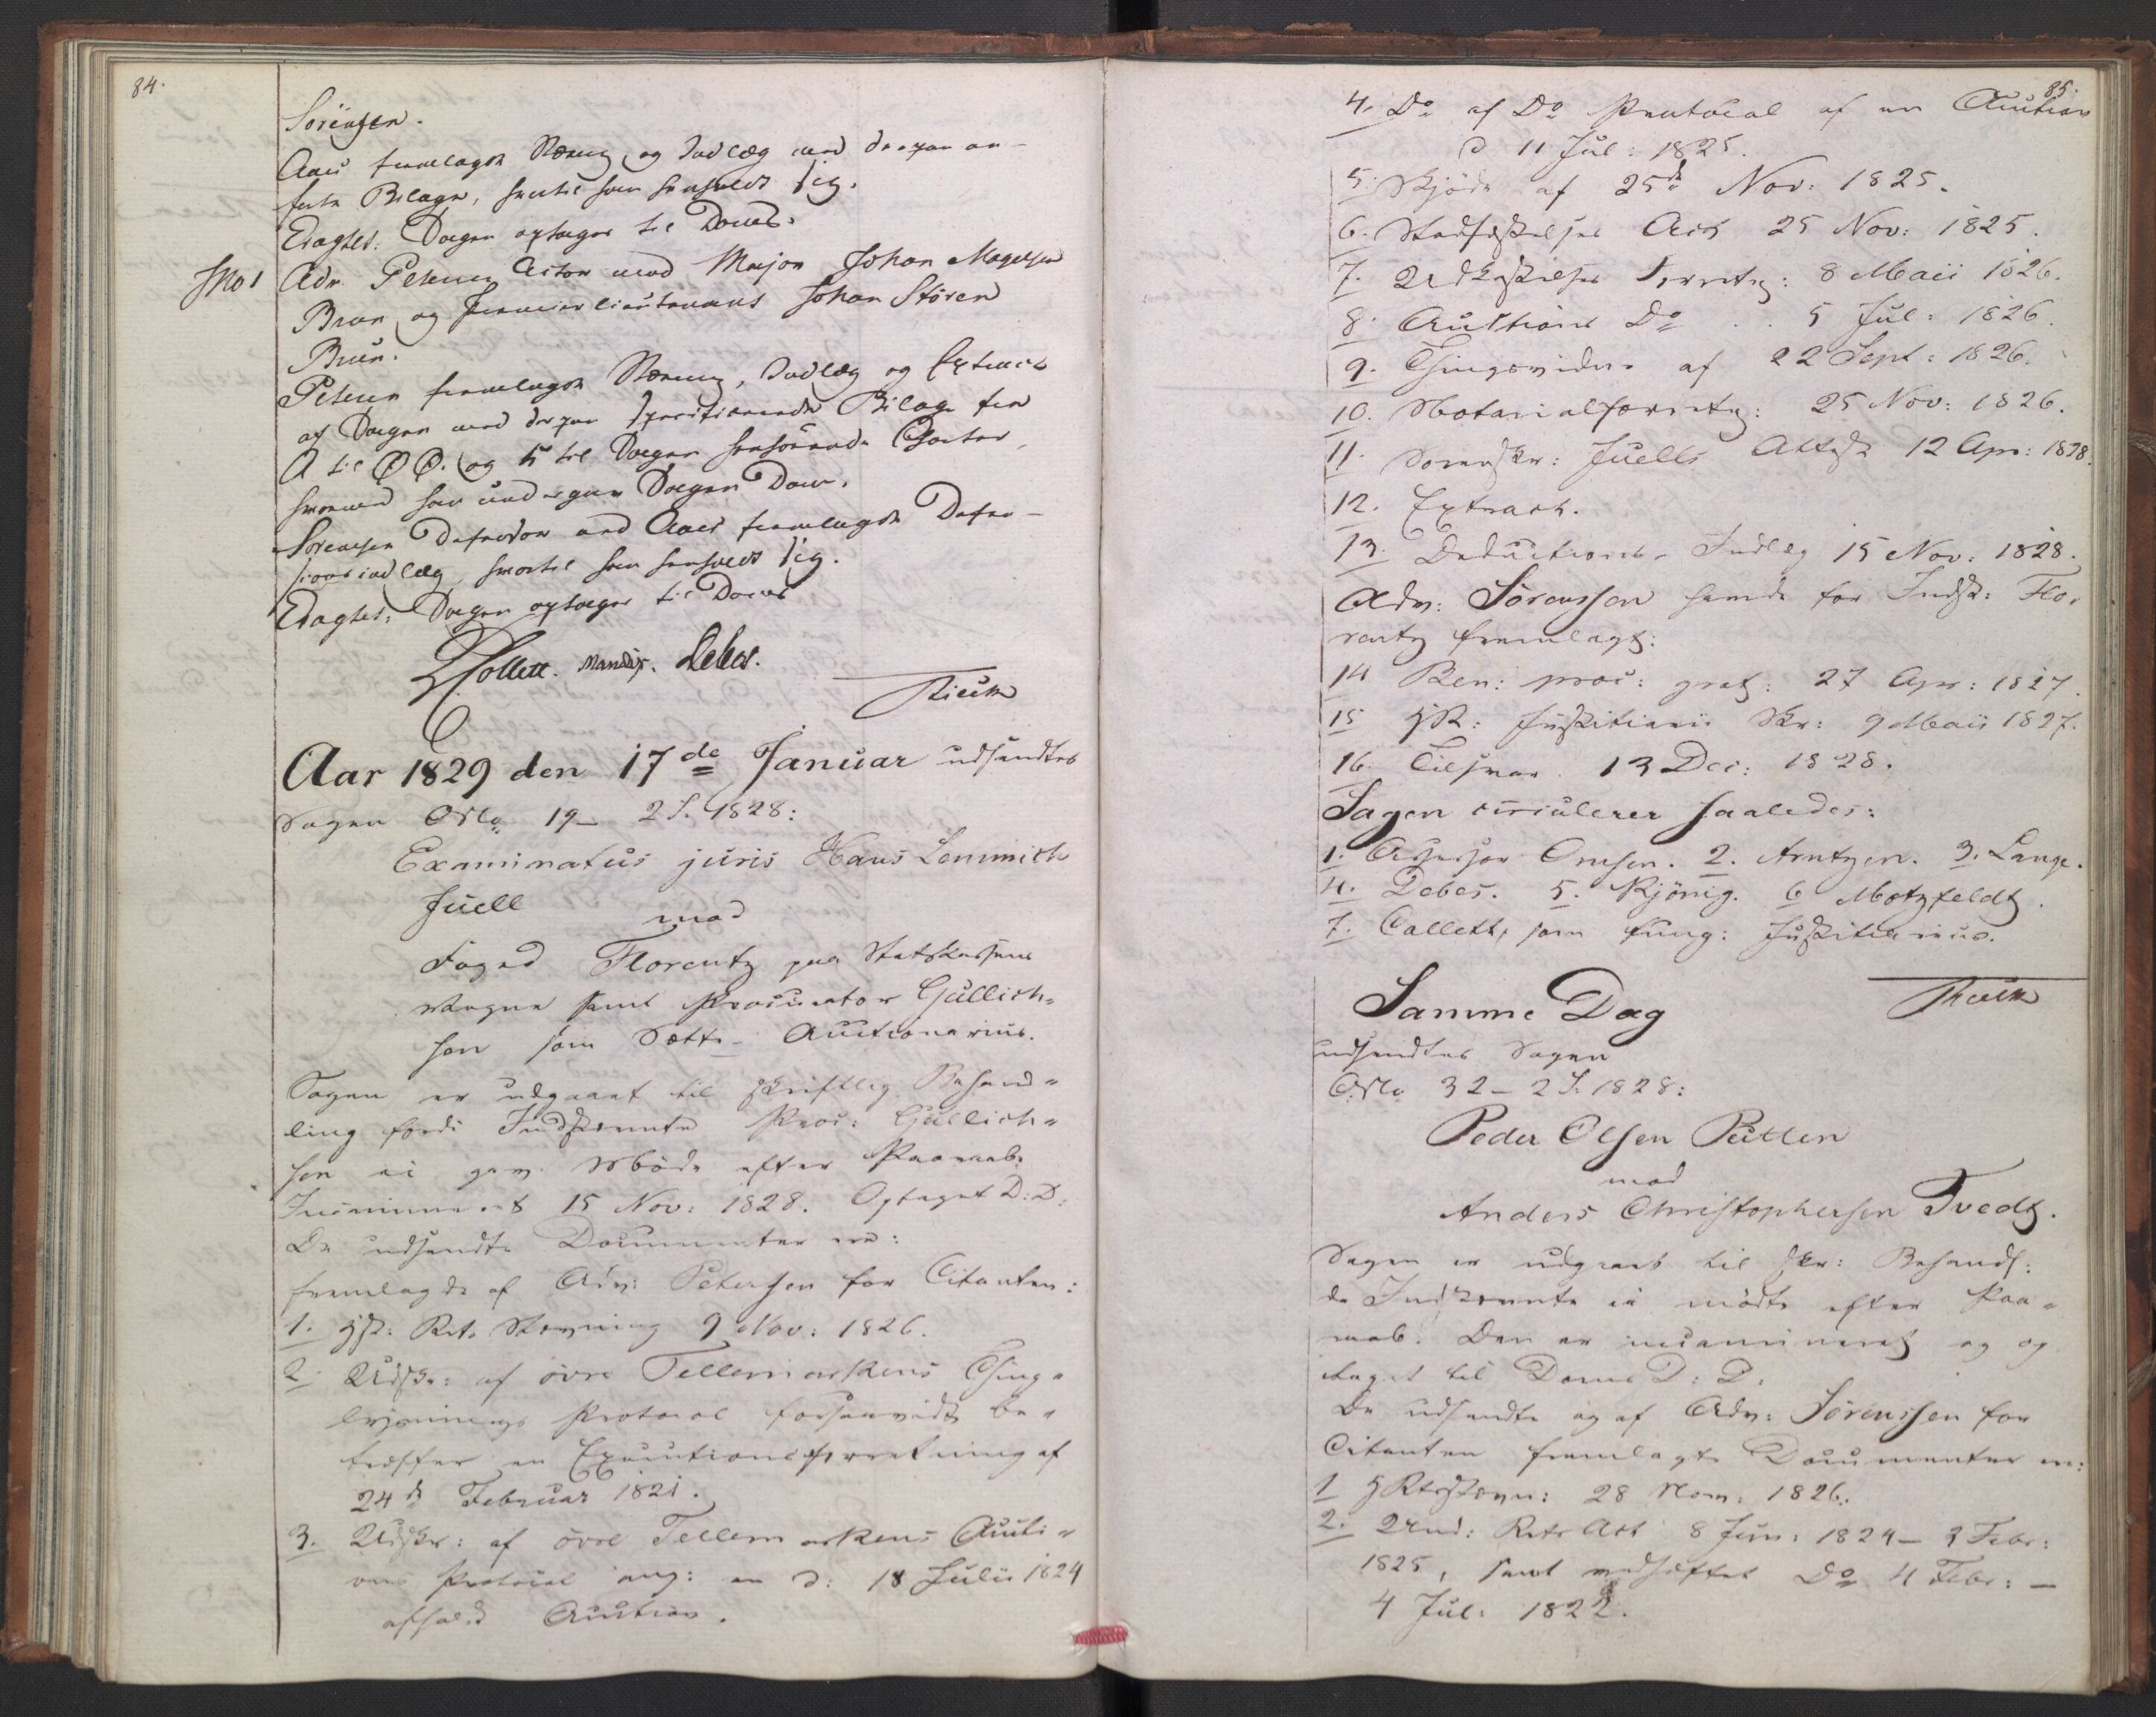 84.
Sörensen.
Aars fremlagde Stevning og Indlæg med derpaa an-
førte Bilage, hvortil han henholdt sig.
Eragtet: Sagen optages til Doms.
No 1 Adv. Petersen Actor mod Major Johan Mogelsen
Brun og Premierlieutenant Johan Stören
Brun.
Petersen fremlagde Stævning, Indlæg og Extract
af Sagen med derpaa specificerede Bilage fra
A til Ø Ø. og 5 til Sagen henhörende Charter,
hvorved han undergav Sagen Dom.
Sörensen Defensor ved Aars fremlagde Defen-
sionsindlæg, hvortil han henholdt sig.
Eragtet: Sagen optages til Doms
Collett. Manddix. Debes.
Aar 1829 den 17de Januar udsendtes
Sagen No 19 – 2 S. 1828:
Examinatus juris Hans Lemmich
Juell
mod
Foged Florentz paa Statskassens
Vegne samt Procurator Gullich-
sen som Sætte-Auctionarius.
Sagen er udgaaet til skriftlig Behand-
ling fordi Indstevnte Proc: Gullich-
sen ei gav Möde efter Paaraab.
Incamineret 15 Nov: 1828. Optaget D: D:
De udsendte Documenter ere:
fremlagde af Adv: Petersen for Citanten:
1. HR: Rets Stevning 9 Nov: 1826.
2. Udskr: af övre Tellemarkens Thing-
lysnings Protocol forsaavidt be-
træffer en Executionsforretning af
24de Februar 1821.
3. Udskr: af övre Tellemarkens Aucti-
ons Protocol ang: en d: 18 Julii 1824
afholdt Auction.
85.
4. Do af Do Protocol af en Auction
d 11 Jul: 1825.
5. Skjöde af 25de Nov: 1825.
6. Stadfæstelses Act 25 Nov: 1825.
7. Udkastelses Forretn: 8 Maii 1826.
8. Auctions Do . . 5 Jul: 1826.
9. Thingsvidne af 22 Sept: 1826.
10. Notarialforretn: 25 Nov: 1826.
11. Sorenskr: Juells Attest 12 Apr: 1828.
12. Extract.
13. Deductions-Indlæg 15 Nov: 1828.
Adv: Sörenssen havde for Indst: Flo-
rentz fremlagt:
14 Ben: proc: grat: 27 Apr: 1827.
15 HR: Justitiarii Skr: 9 Maii 1827.
16. Tilsvar 13 Dec: 1828.
Sagen circulerer saaledes:
1. Assessor Omsen. 2. Arntzen. 3. Lange.
4. Debes. 5. Kjönig. 6 Motzfeldt.
7. Collett, som fung: Justitiarius.
Samme Dag
udsendtes Sagen
No 32 – 2 S. 1828:
Peder Olsen Putten
mod
Anders Christophersen Tvedt.
Sagen er udgaaet til skr: Behandl:
da Indstevnte ei mödte efter Paa-
raab. Den er incamineret og op
taget til Doms D: D:
De udsendte og af Adv: Sörenssen for
Citanten fremlagte Documenter ere:
1 HRtsstevn: 28 Nov: 1826.
2. Und: Rets Act 8 Jun: 1824 – 2 Febr:
1825, samt vedhæftet Do 4 Febr: –
4 Jul: 1822.